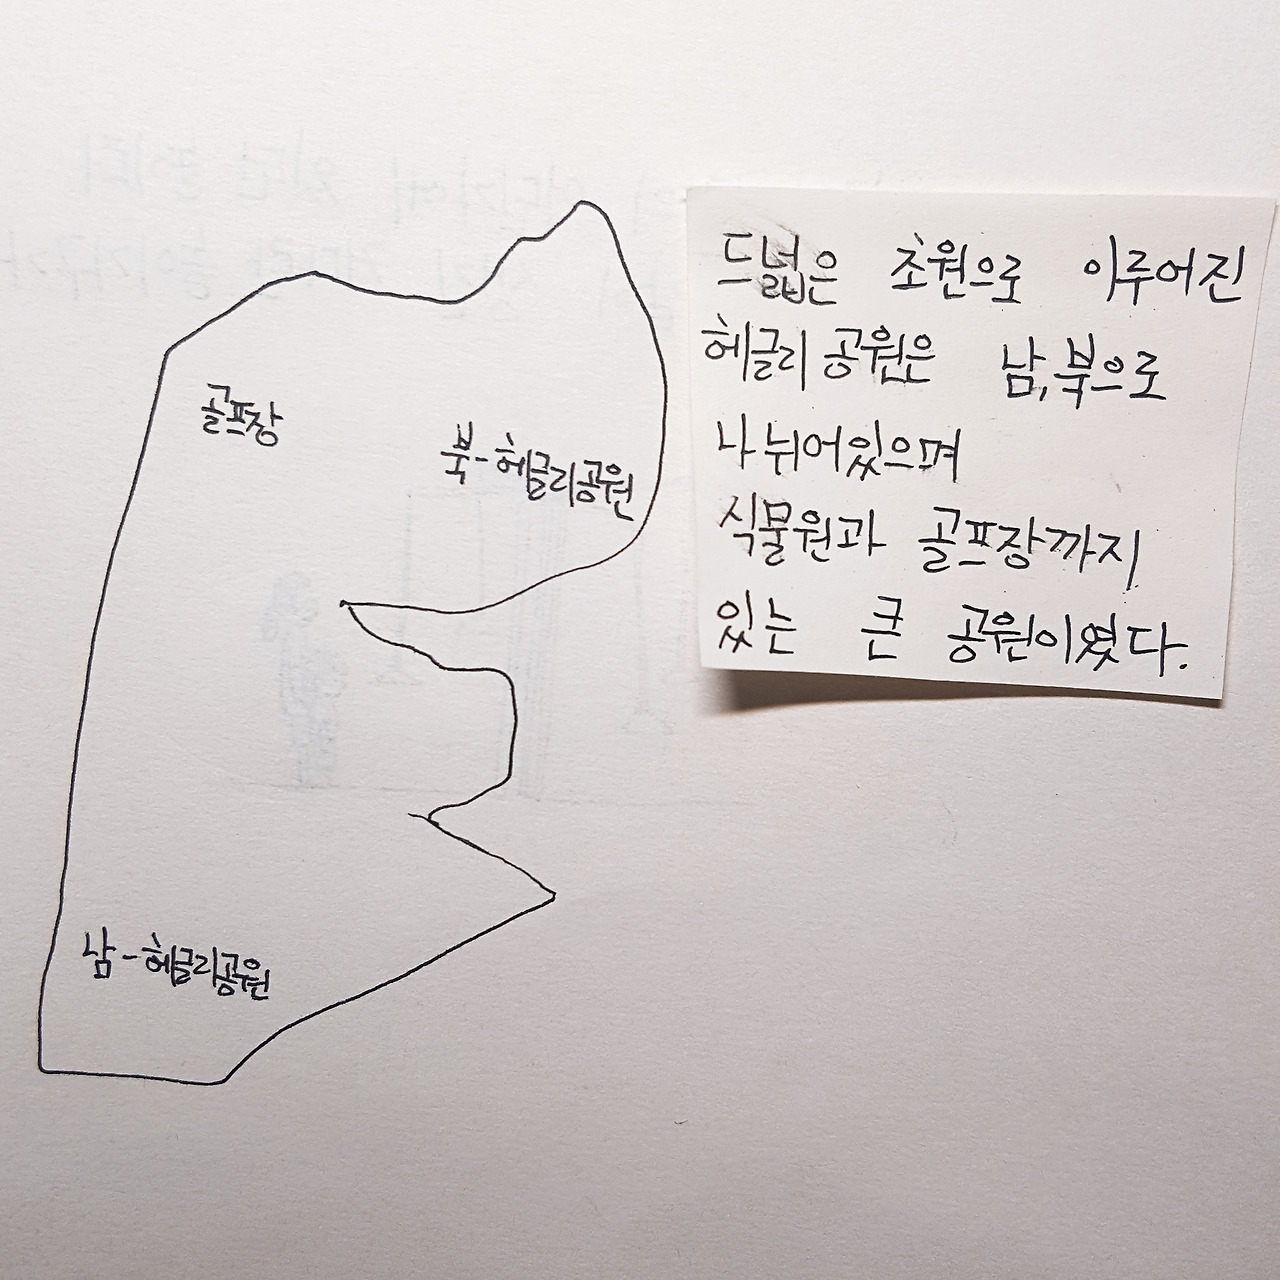 골프장
북-헤글리공원
남-헤글리공원
드넓은 초원으로 이루어진
헤글리 공원은 남,북으로
나뉘어있으며
식물원과 골프장까지
있는 큰 공원이였다.